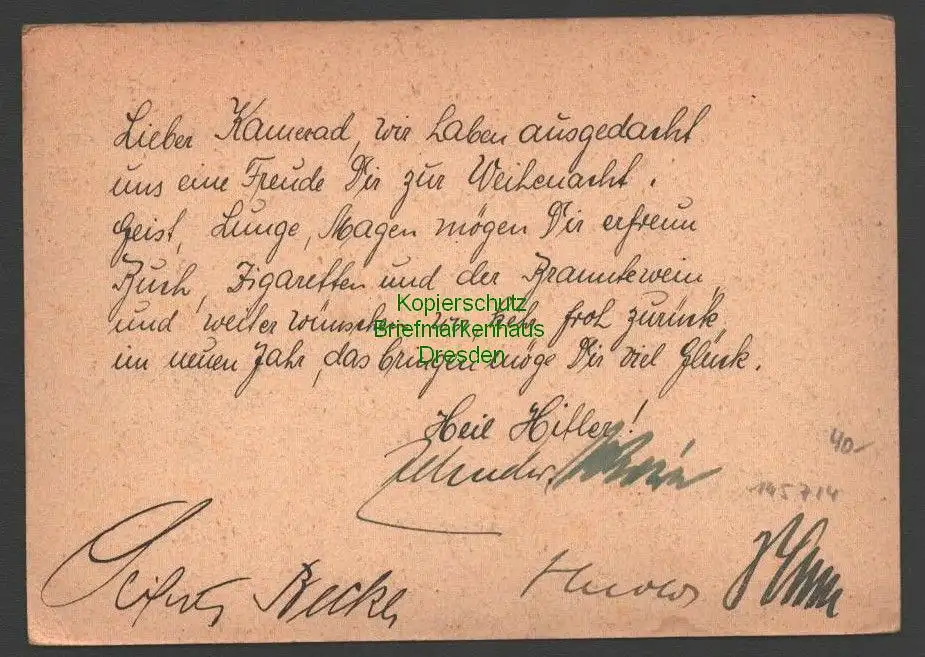 Lieber Kamerad, wir haben ausgedacht
uns eine Freude Dir zur Weihenacht.
Geist, Lunge, Magen mögen Dir erfreun
Buch, Zigaretten und der Branntewein,
Kopierschutz
und weiter wünschen wir, kehr froh zurück,
Briefmarkenhaus
im neuen Jahr, das bringen möge Dir viel Glück.
Dresden
Heil Hitler!
40-
145714
Becker